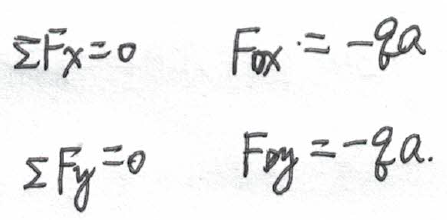 ΣFx=0 FDx = -qa
ΣFy=0 FDy = -qa.